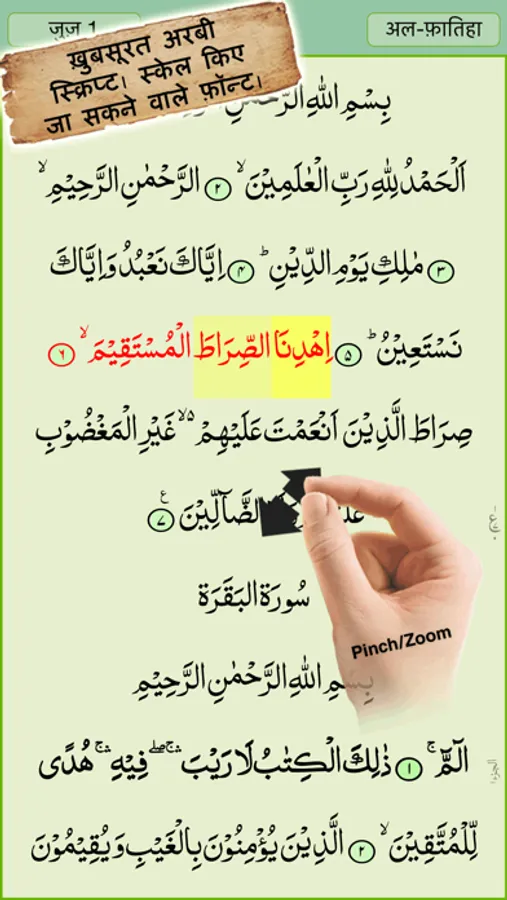 जुज़ 1
अल-फ़ातिहा
ख़ुबसूरत अरबी
स्क्रिप्ट। स्केल किए
जा सकने वाले फ़ॉन्ट।
بِسْمِ اللهِ
اَلْحَمْدُ لِلّٰهِ رَبِّ الْعٰلَمِيْنَ ۙ ۲ الرَّحْمٰنِ الرَّحِيْمِ ۙ
۳ مٰلِكِ يَوْمِ الدِّيْنِ ؕ ۴ اِيَّاكَ نَعْبُدُ وَاِيَّاكَ
نَسْتَعِيْنُ ؕ ۵ اِهْدِنَا الصِّرَاطَ الْمُسْتَقِيْمَ ۙ ۶
صِرَاطَ الَّذِيْنَ اَنْعَمْتَ عَلَيْهِمْ ۙ۵ غَيْرِ الْمَغْضُوْبِ
الضَّآلِّيْنَ ۷ ع
سُورَة البَقَرَة
Pinch/Zoom
بِسْمِ اللهِ الرَّحْمٰنِ الرَّحِيْمِ
الٓمّٓ ۚ ۱ ذٰلِكَ الْكِتٰبُ لَا رَيْبَ ۛۖ فِيْهِ ۛۚ هُدًى
لِّلْمُتَّقِيْنَ ۙ ۲ الَّذِيْنَ يُؤْمِنُوْنَ بِالْغَيْبِ وَيُقِيْمُوْنَ